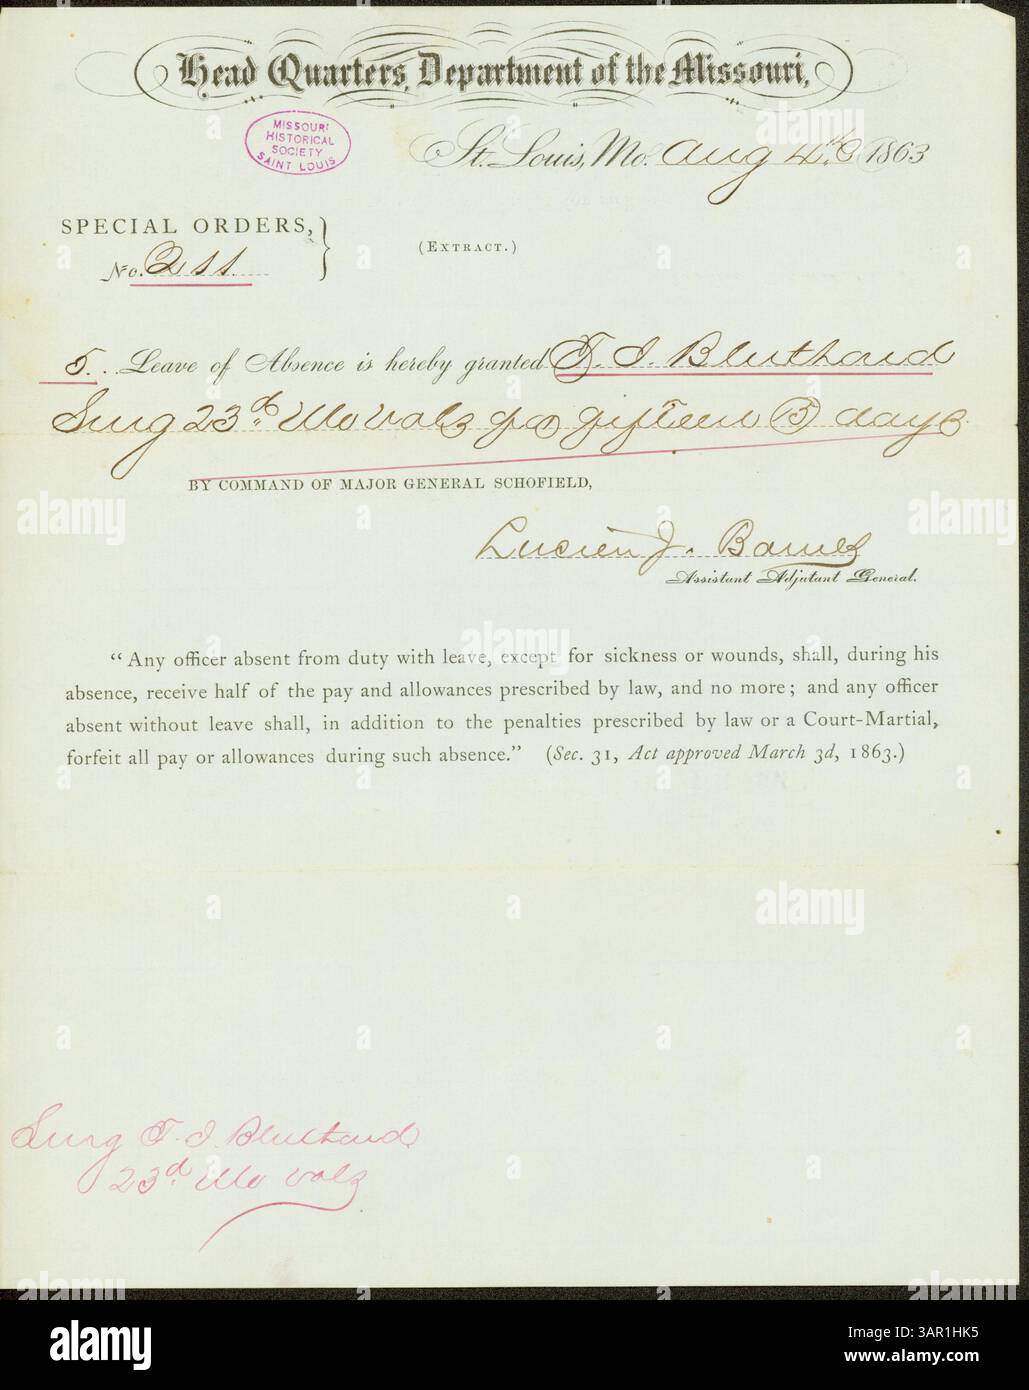 Head Quarters, Department of the Missouri,
MISSOURI
HISTORICAL
SOCIETY
SAINT LOUIS
St. Louis, Mo. Aug 4th 1863
SPECIAL ORDERS,
(EXTRACT.)
No. 211.
5. Leave of Absence is hereby granted F. J. Bluthard
Surg 23d. Mo Vols for fifteen 15 days
BY COMMAND OF MAJOR GENERAL SCHOFIELD,
Lucien J. Barnes
Assistant Adjutant General.
“Any officer absent from duty with leave, except for sickness or wounds, shall, during his
absence, receive half of the pay and allowances prescribed by law, and no more; and any officer
absent without leave shall, in addition to the penalties prescribed by law or a Court-Martial,
forfeit all pay or allowances during such absence.” (Sec. 31, Act approved March 3d, 1863.)
Surg F. J. Bluthard
23d. Mo Vols
alamy
Image ID: 3AR1HK5
www.alamy.com